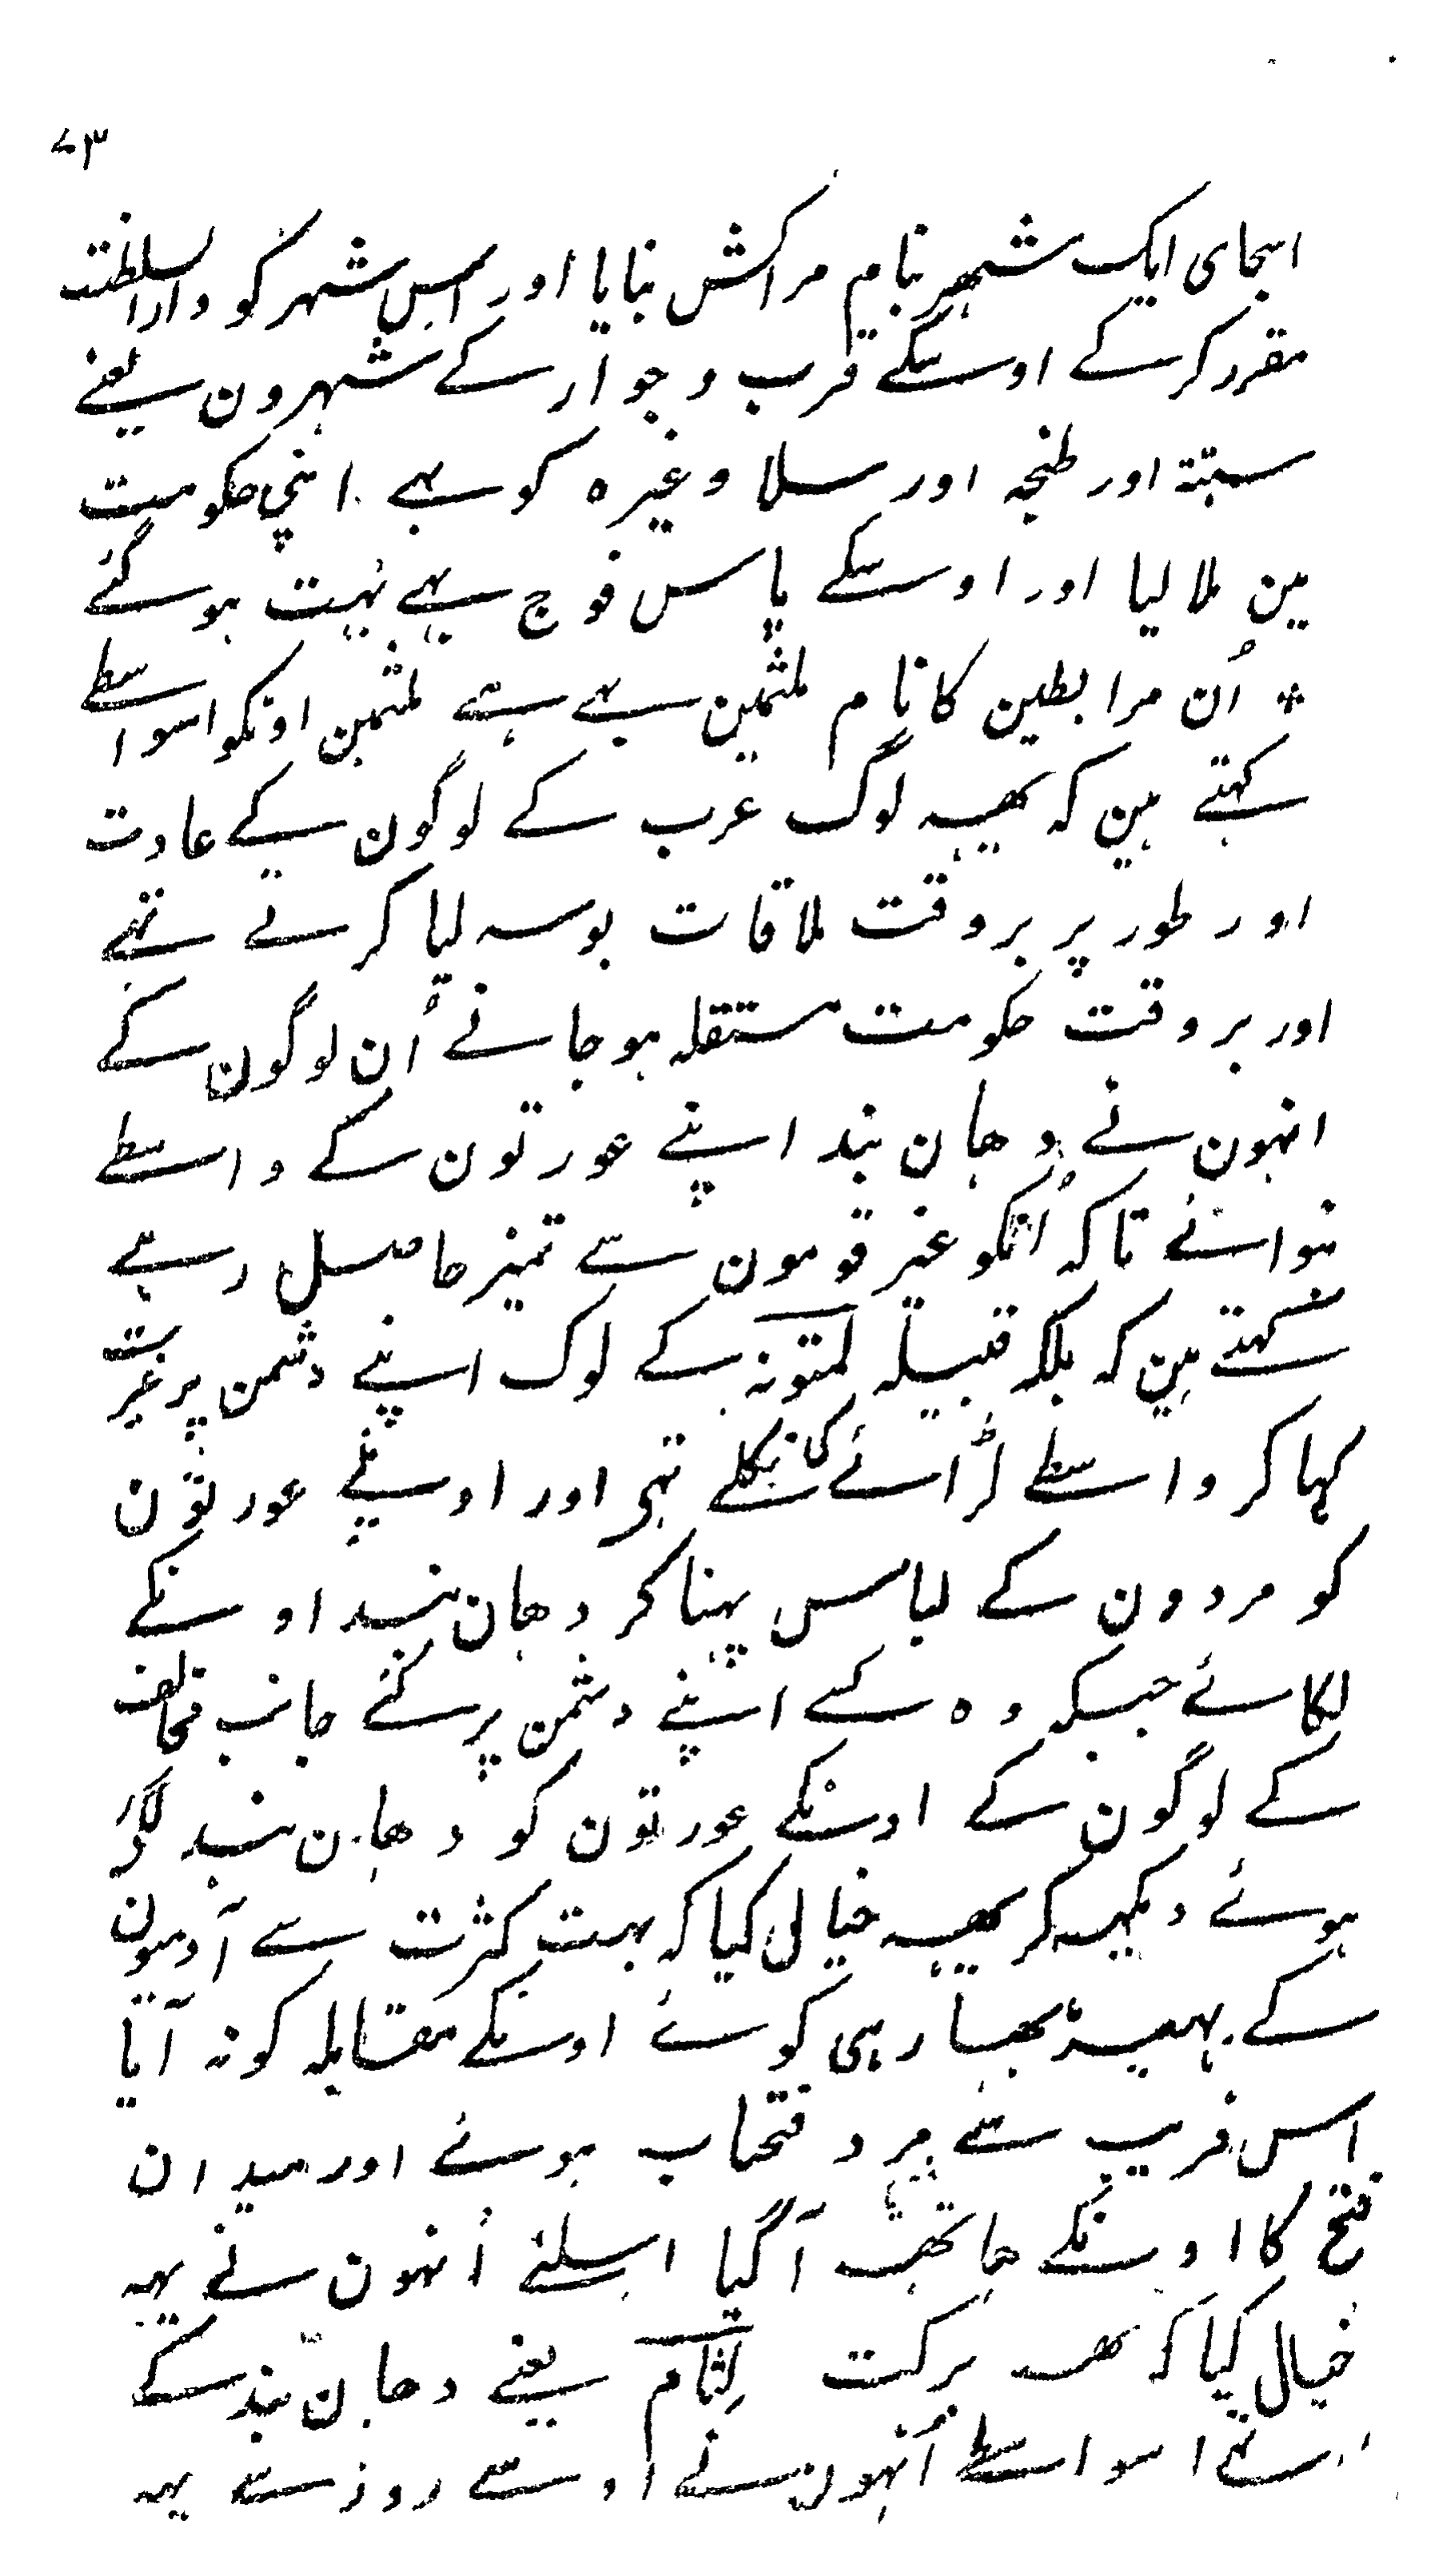 ۷۳
اسجای ایک شھر بنام مراکش بنایا اور اس شہر کو دارالسلطنت
مقرر کر کے اوسکے قرب و جوار کے شہرون یعنے
سبتة اور طنجه اور سلا وغیرہ کو بہے اپنی حکومت
مین ملا لیا اور اوسکے پاس فوج بہے بہت ہو گئے
* اُن مرابطین کا نام ملثمین بہے ہے ملثمین اونکو اسواسطے
کہتے ہین کہ یھہ لوگ عرب کے لوگون کے عادت
اور طور پر بروقت ملاقات بوسہ لیا کرتے تہے
اور بروقت حکومت مستقلہ ہو جانے اُن لوگون کے
انہون نے دھان بند اپنے عورتون کے واسطے
بنوائے تاکہ اُنکو غیر قومون سے تمیز حاصل رہے
کہتے ہین کہ بلکہ قبیلہ لمتونہ کے لوک اپنے دشمن پر غیرت
کہا کر واسطے لڑائے کی نکلے تہی اور اونہے عورتون
کو مردون کے لباس پہنا کر دھان بند اونکے
لگائے جبکہ وہ کسے اپنے دشمن پر گئے جانب مخالف
کے لوگون کے اونکے عورتون کو دھان بند لگائے
ہوئے دیکہہ کر یھہ خیال کیا کہ بہت کثرت سے آدمیون
کے بہیڑ بھاڑ ہی کوئے اونکے مقابلہ کو نہ آیا
اس فریب سے مرد فتحیاب ہوئے اور میدان
فتح کا اونکے ھاتھہ آگیا اسلئے اُنہون نے یہہ
خیال کیا کہ یھہ برکت لِثام یعنے دھان بند کے
اسواسطے اُنہون نے اوسے روز سے یہہ